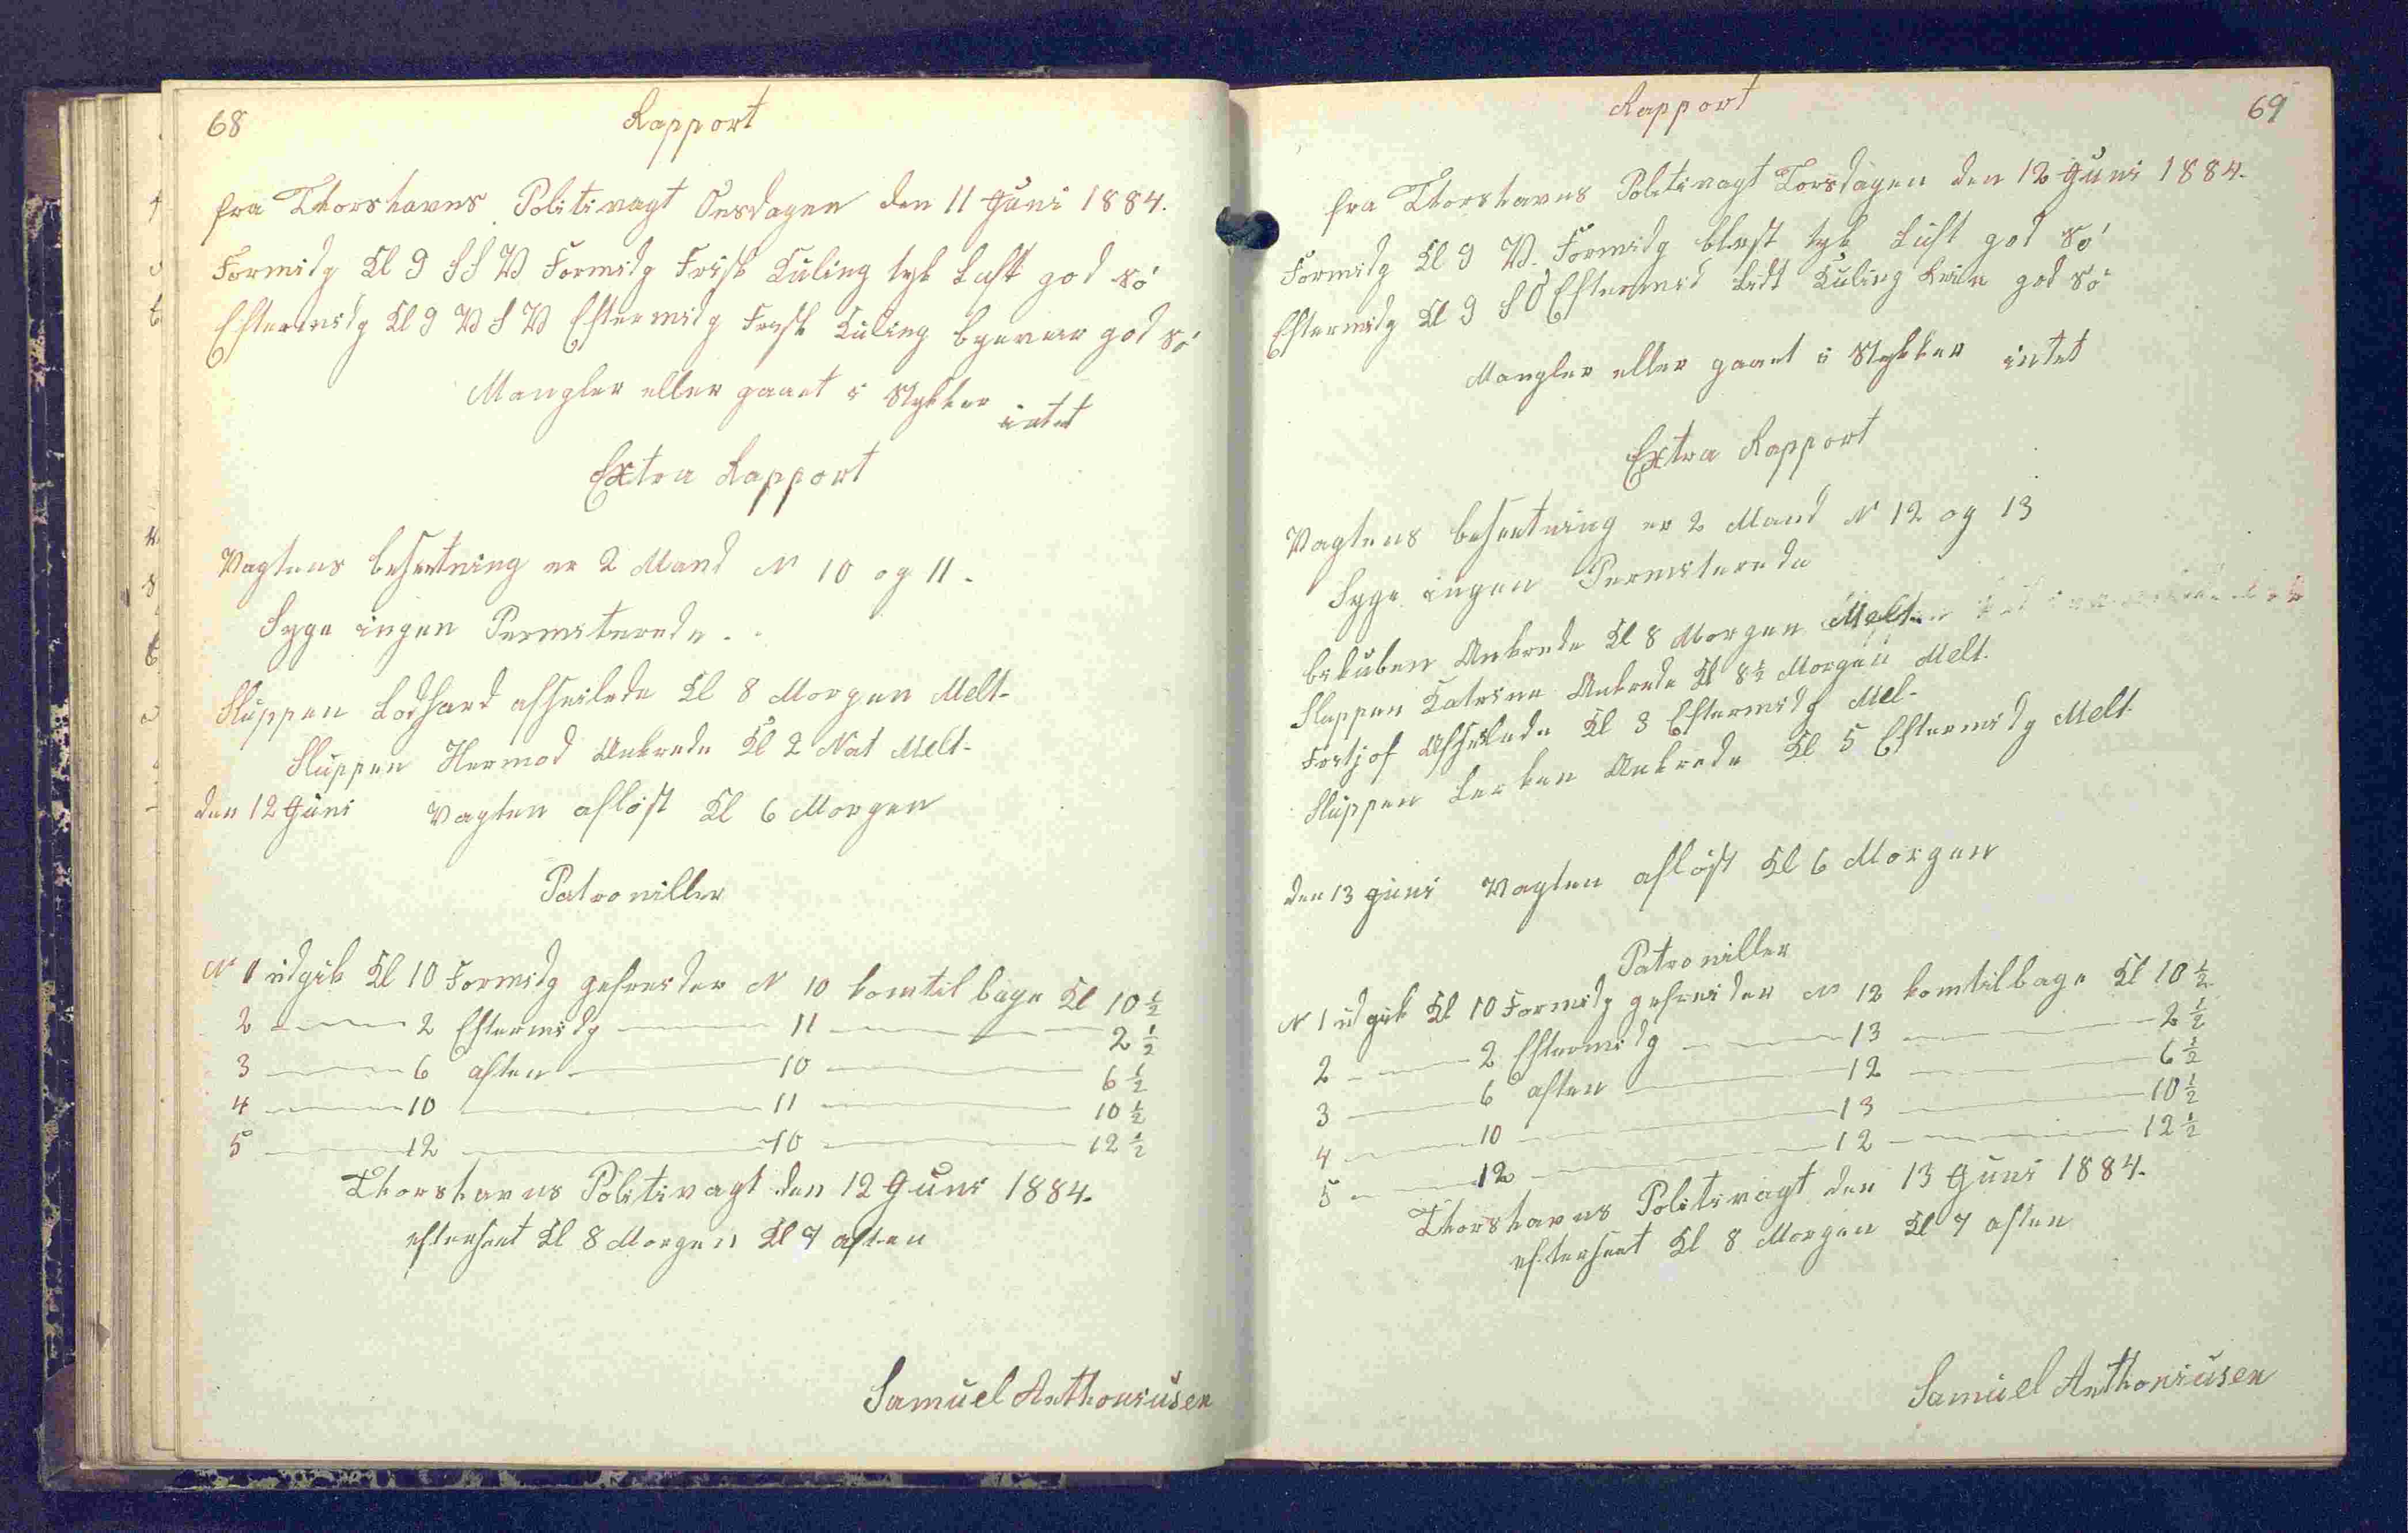 68
Rapport
fra Thorshavns Politivagt Onsdagen den 11 Juni 1884.
Formidg Kl 9 S S V Formidg Frisk Kuling tyk Luft god Sö
Eftermidg Kl 9 V S V Eftermidg Frisk Kuling god Sö
Mangler eller gaaet i Stykker intet
Extra Rapport
Vagtens besætning er 2 Mand N 10 og 11.
Syge ingen Permiterede.
Sluppen afseilede Kl 8 Morgen Melt.
Sluppen Hermod Ankrede Kl 2 Nat Melt.
den 12 Juni Vagten aflöst Kl 6 Morgen
Patroviller
N 1 udgik Kl 10 Formidg gefreider N 10 kom tilbage Kl 10 ½
2 — 2 Eftermidg — 11 — 2 ½
3 — 6 aften — 10 — 6 ½
4 — 10 — 11 — 10 ½
5 — 12 — 10 — 12 ½
Thorshavns Politivagt den 12 Juni 1884.
efterseet Kl 8 Morgen Kl 7 aften
Samuel Anthoniusen
69
Rapport
fra Thorshavns Politivagt Torsdagen den 12 Juni 1884.
Formidg Kl 9 V. Formidg blæst tyk Luft god Sö
Eftermidg Kl 9 S O Eftermid Lidt Kuling god Sö
Mangler eller gaaet i Stykker intet
Extra Rapport
Vagtens besætning er 2 Mand N 12 og 13
Syge ingen Permiterede
Ankrede Kl 8 Morgen Melt.
Sluppen Katrine Ankrede Kl 8½ Morgen Melt.
Fortjof Afseilede Kl 3 Eftermidg Mel.
Sluppen Lerken Ankrede Kl 5 Eftermidg Melt.
den 13 juni Vagten aflöst Kl 6 Morgen
Patroviller
N 1 udgik Kl 10 Formidg gefreider N 12 kom tilbage Kl 10 ½
2 — 2 Eftermidg — 13 — 2 ½
3 — 6 aften — 12 — 6 ½
4 — 10 — 13 — 10 ½
5 — 12 — 12 — 12 ½
Thorshavns Politivagt den 13 Juni 1884.
efterseet Kl 8 Morgen Kl 7 aften
Samuel Anthoniusen